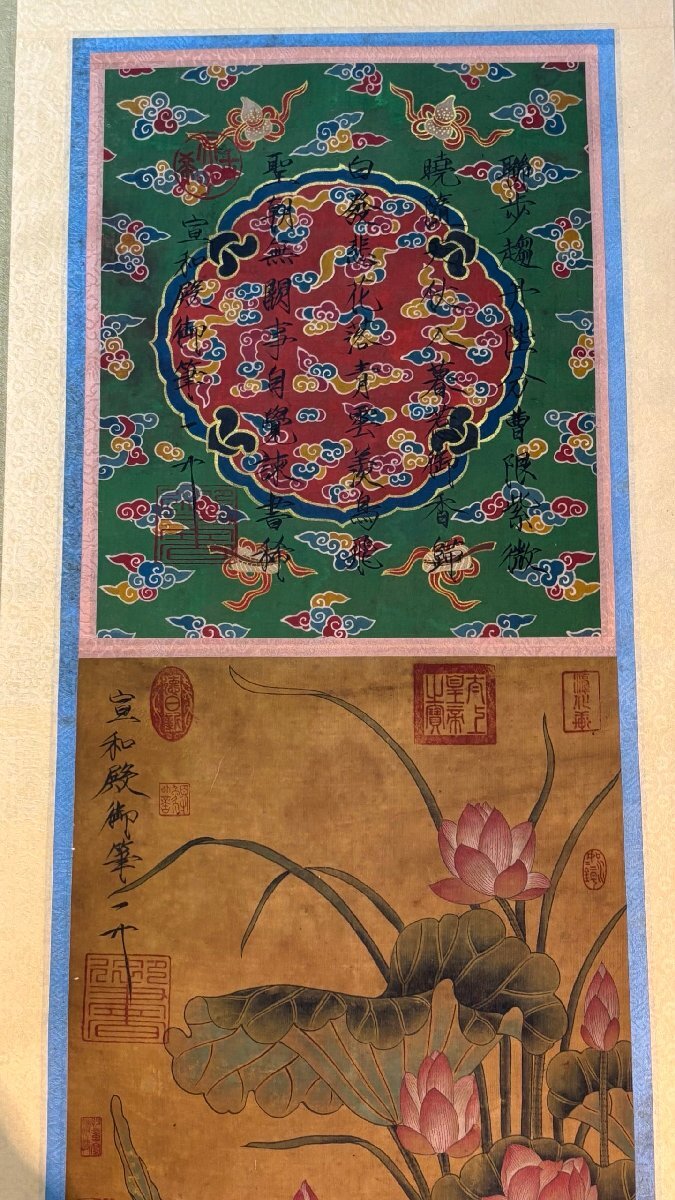 聯步趨丹陛分曹限紫微
曉隨天仗入暮惹御香歸
白發悲花落青雲羨鳥飛
聖朝無闕事自覺諫書稀
宣和殿御筆
太上皇帝之寶
宣和殿御筆